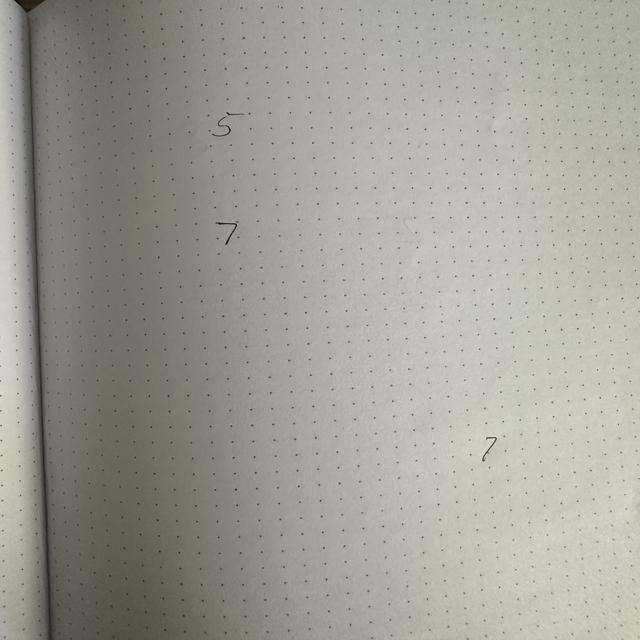 5
7
7